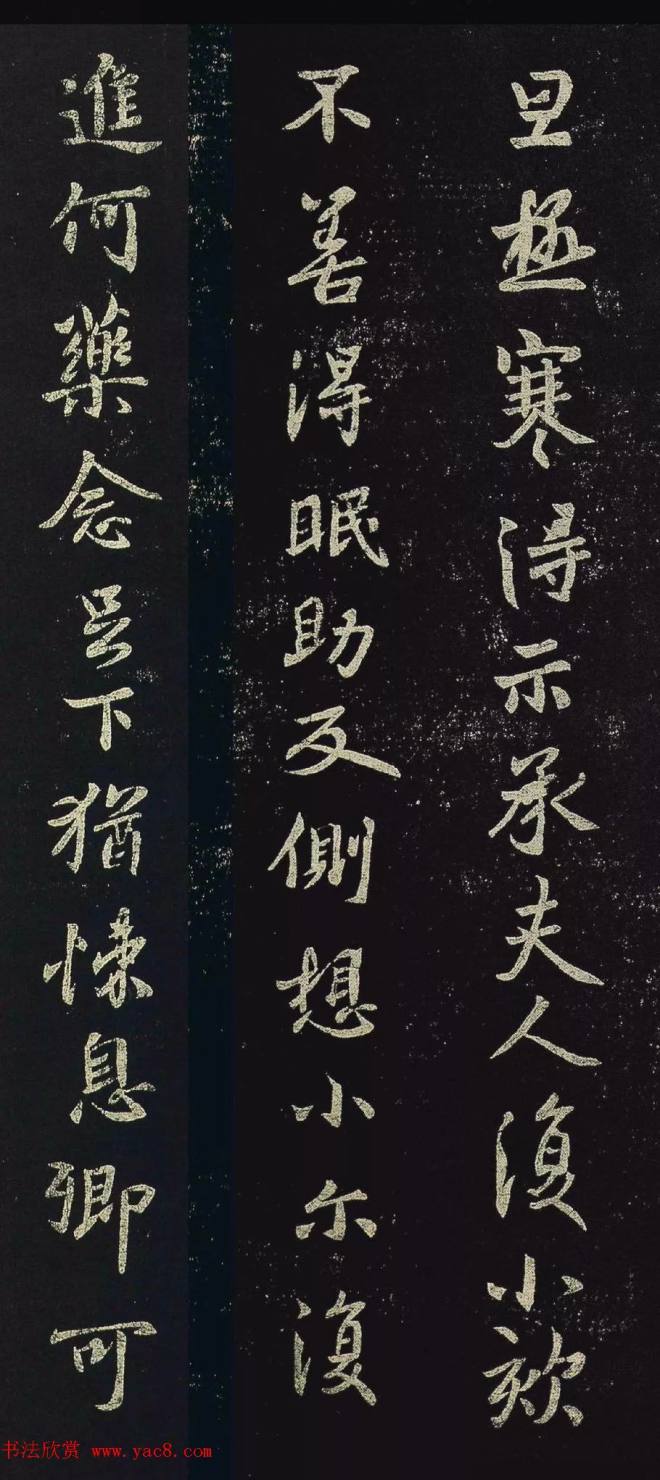 旦極寒得示承夫人復小欬
不善得眠助反側想小尒復
進何藥念足下猶悚息卿可
书法欣赏 www.yac8.com